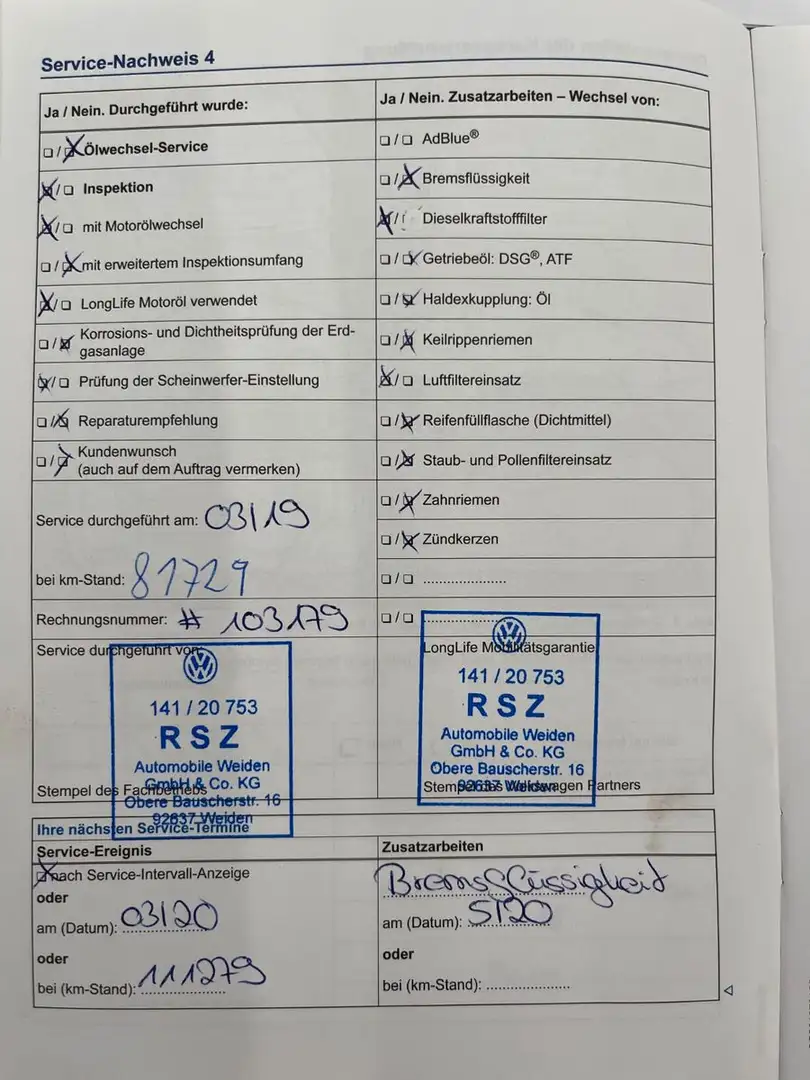 Service-Nachweis 4
Ja / Nein. Durchgeführt wurde:
Ölwechsel-Service
Inspektion
mit Motorölwechsel
mit erweitertem Inspektionsumfang
LongLife Motoröl verwendet
Korrosions- und Dichtheitsprüfung der Erd-
gasanlage
Prüfung der Scheinwerfer-Einstellung
Reparaturempfehlung
Kundenwunsch
(auch auf dem Auftrag vermerken)
Service durchgeführt am: 03/19
bei km-Stand: 81729
Rechnungsnummer: # 103179
Service durchgeführt von:
141 / 20 753
RSZ
Automobile Weiden
GmbH & Co. KG
Obere Bauscherstr. 16
92637 Weiden
Stempel des Fachbetriebs
Ja / Nein. Zusatzarbeiten – Wechsel von:
AdBlue®
Bremsflüssigkeit
Dieselkraftstofffilter
Getriebeöl: DSG®, ATF
Haldexkupplung: Öl
Keilrippenriemen
Luftfiltereinsatz
Reifenfüllflasche (Dichtmittel)
Staub- und Pollenfiltereinsatz
Zahnriemen
Zündkerzen
LongLife Mobilitätsgarantie
141 / 20 753
RSZ
Automobile Weiden
GmbH & Co. KG
Obere Bauscherstr. 16
92637 Weiden
Stempel des Volkswagen Partners
Ihre nächsten Service-Termine
Service-Ereignis
nach Service-Intervall-Anzeige
oder
am (Datum): 03/20
oder
bei (km-Stand): 111279
Zusatzarbeiten
Bremsflüssigkeit
am (Datum): 5/20
oder
bei (km-Stand):